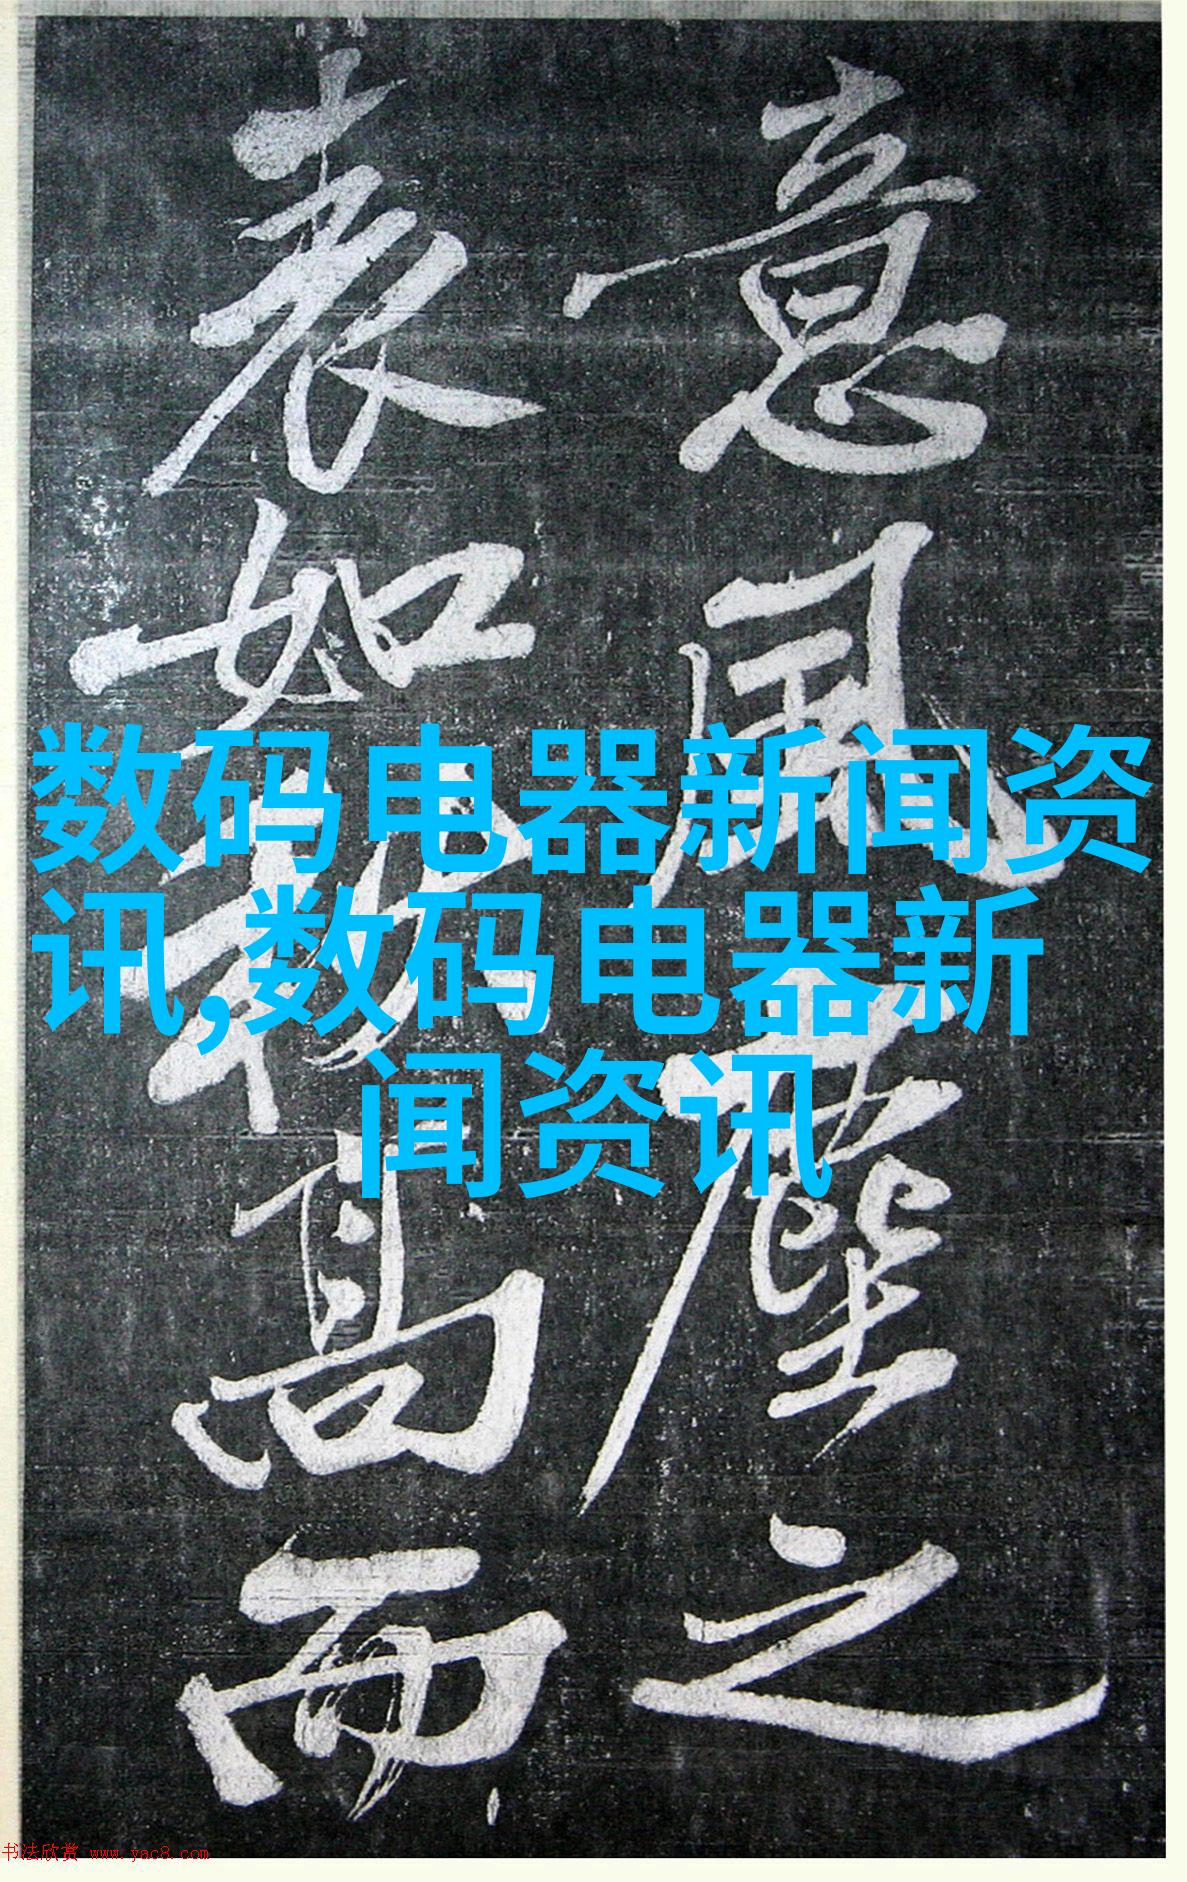 意風塵之
表如秋高而
数码电器新闻资
讯,数码电器新
闻资讯
书法欣赏 www.yac8.com